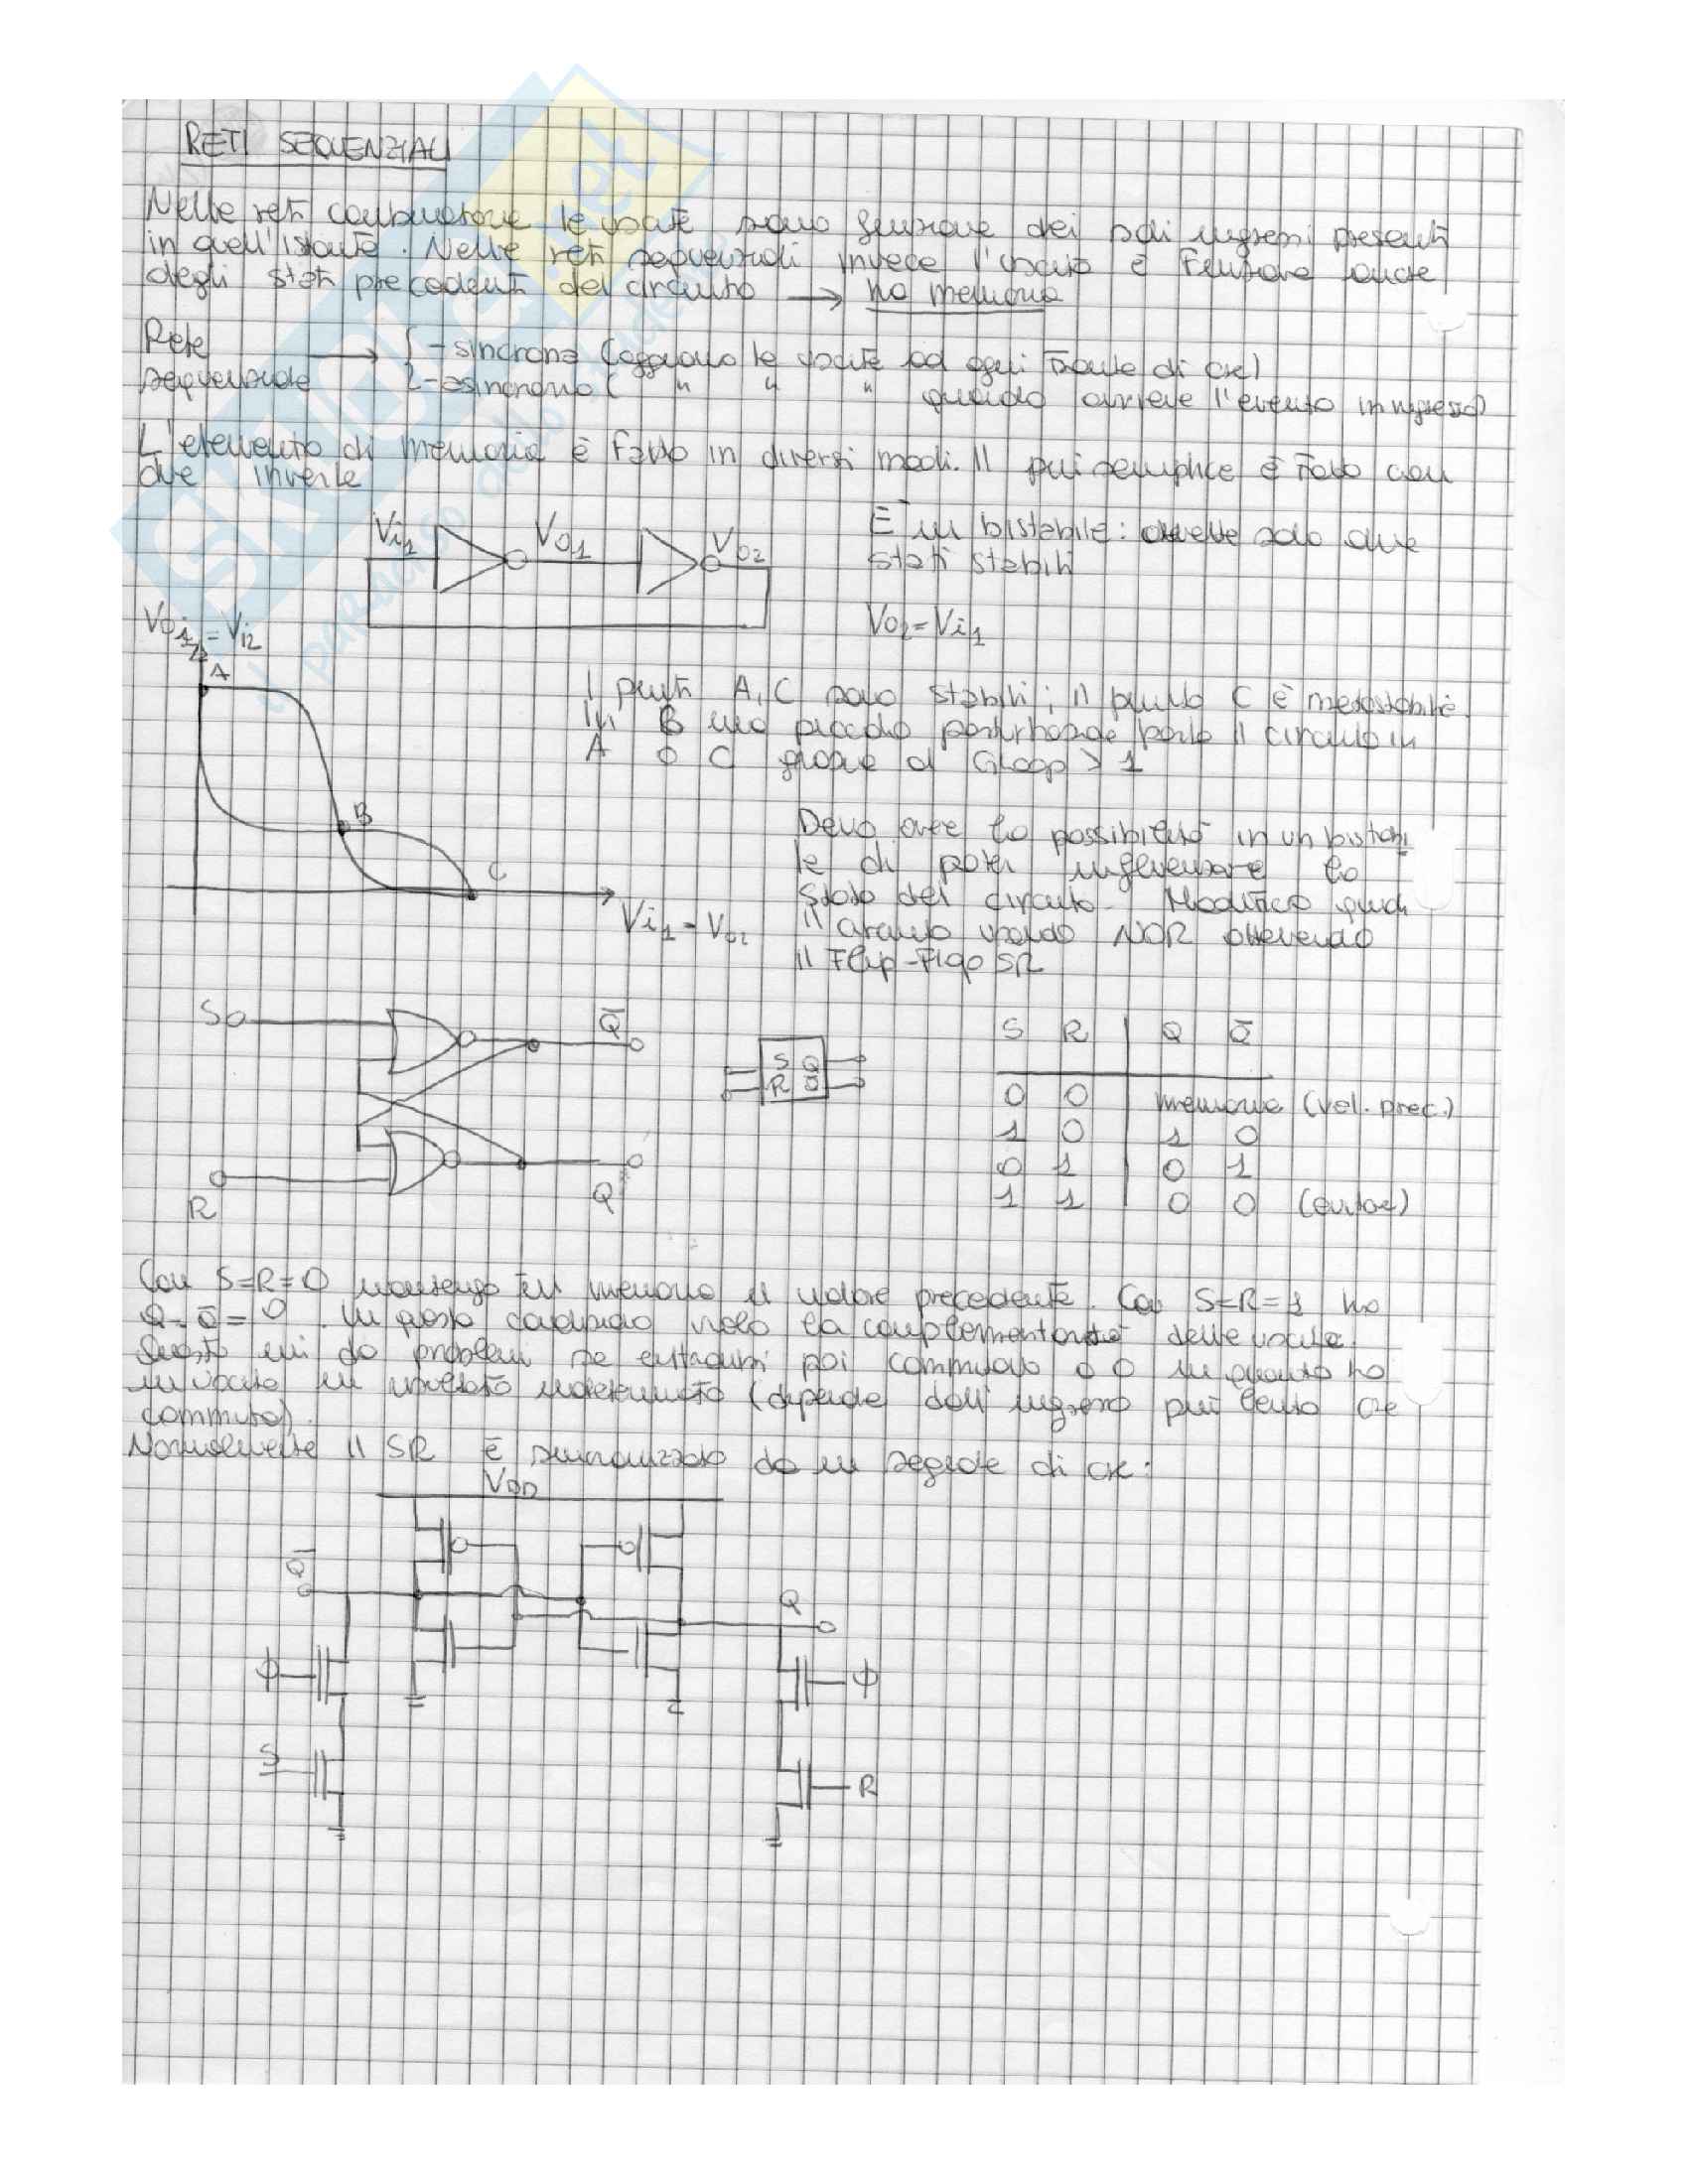 RETI SEQUENZIALI
Nelle reti combinatorie le uscite sono funzione dei soli ingressi presenti
in quell'istante. Nelle reti sequenziali invece l'uscita è funzione anche
degli stati precedenti del circuito → ha memoria
Rete → { - sincrona (aggiorno le uscite ad ogni fronte di ck)
sequenziale - asincrona ( " " " quando avviene l'evento in ingresso)
L'elemento di memoria è fatto in diversi modi. Il più semplice è fatto con
due inverter
Vi1 Vo1 Vo2
È un bistabile: ammette solo due
stati stabili
Vo2=Vi1
= Vi2
A
I punti A, C sono stabili; il punto C è metastabile.
In B una piccola perturbaz porta il circuito in
A o C grazie al Gloop > 1
B
C
Vi1 = Vo2
Devo avere la possibilità in un bistabi
le di poter influenzare lo
stato del circuito. Modifico quindi
il circuito usando NOR ottenendo
il Flip-Flop SR
S Q̅
R Q
S Q
R Q̅
S R Q Q̅
0 0 memoria (val. prec.)
1 0 1 0
0 1 0 1
1 1 0 0 (evitare)
Con S=R=0 mantengo in memoria il valore precedente. Con S=R=1 ho
Q=Q̅=0. In questa condizione violo la complementarietà delle uscite.
Questo mi dà problemi se entrambi poi commutano a 0 in quanto ho
in uscita un risultato indeterminato (dipende dall'ingresso più lento che
commuta).
Normalmente il SR è sincronizzato da un segnale di ck:
VDD
Q̅
Q
ϕ
ϕ
S
R